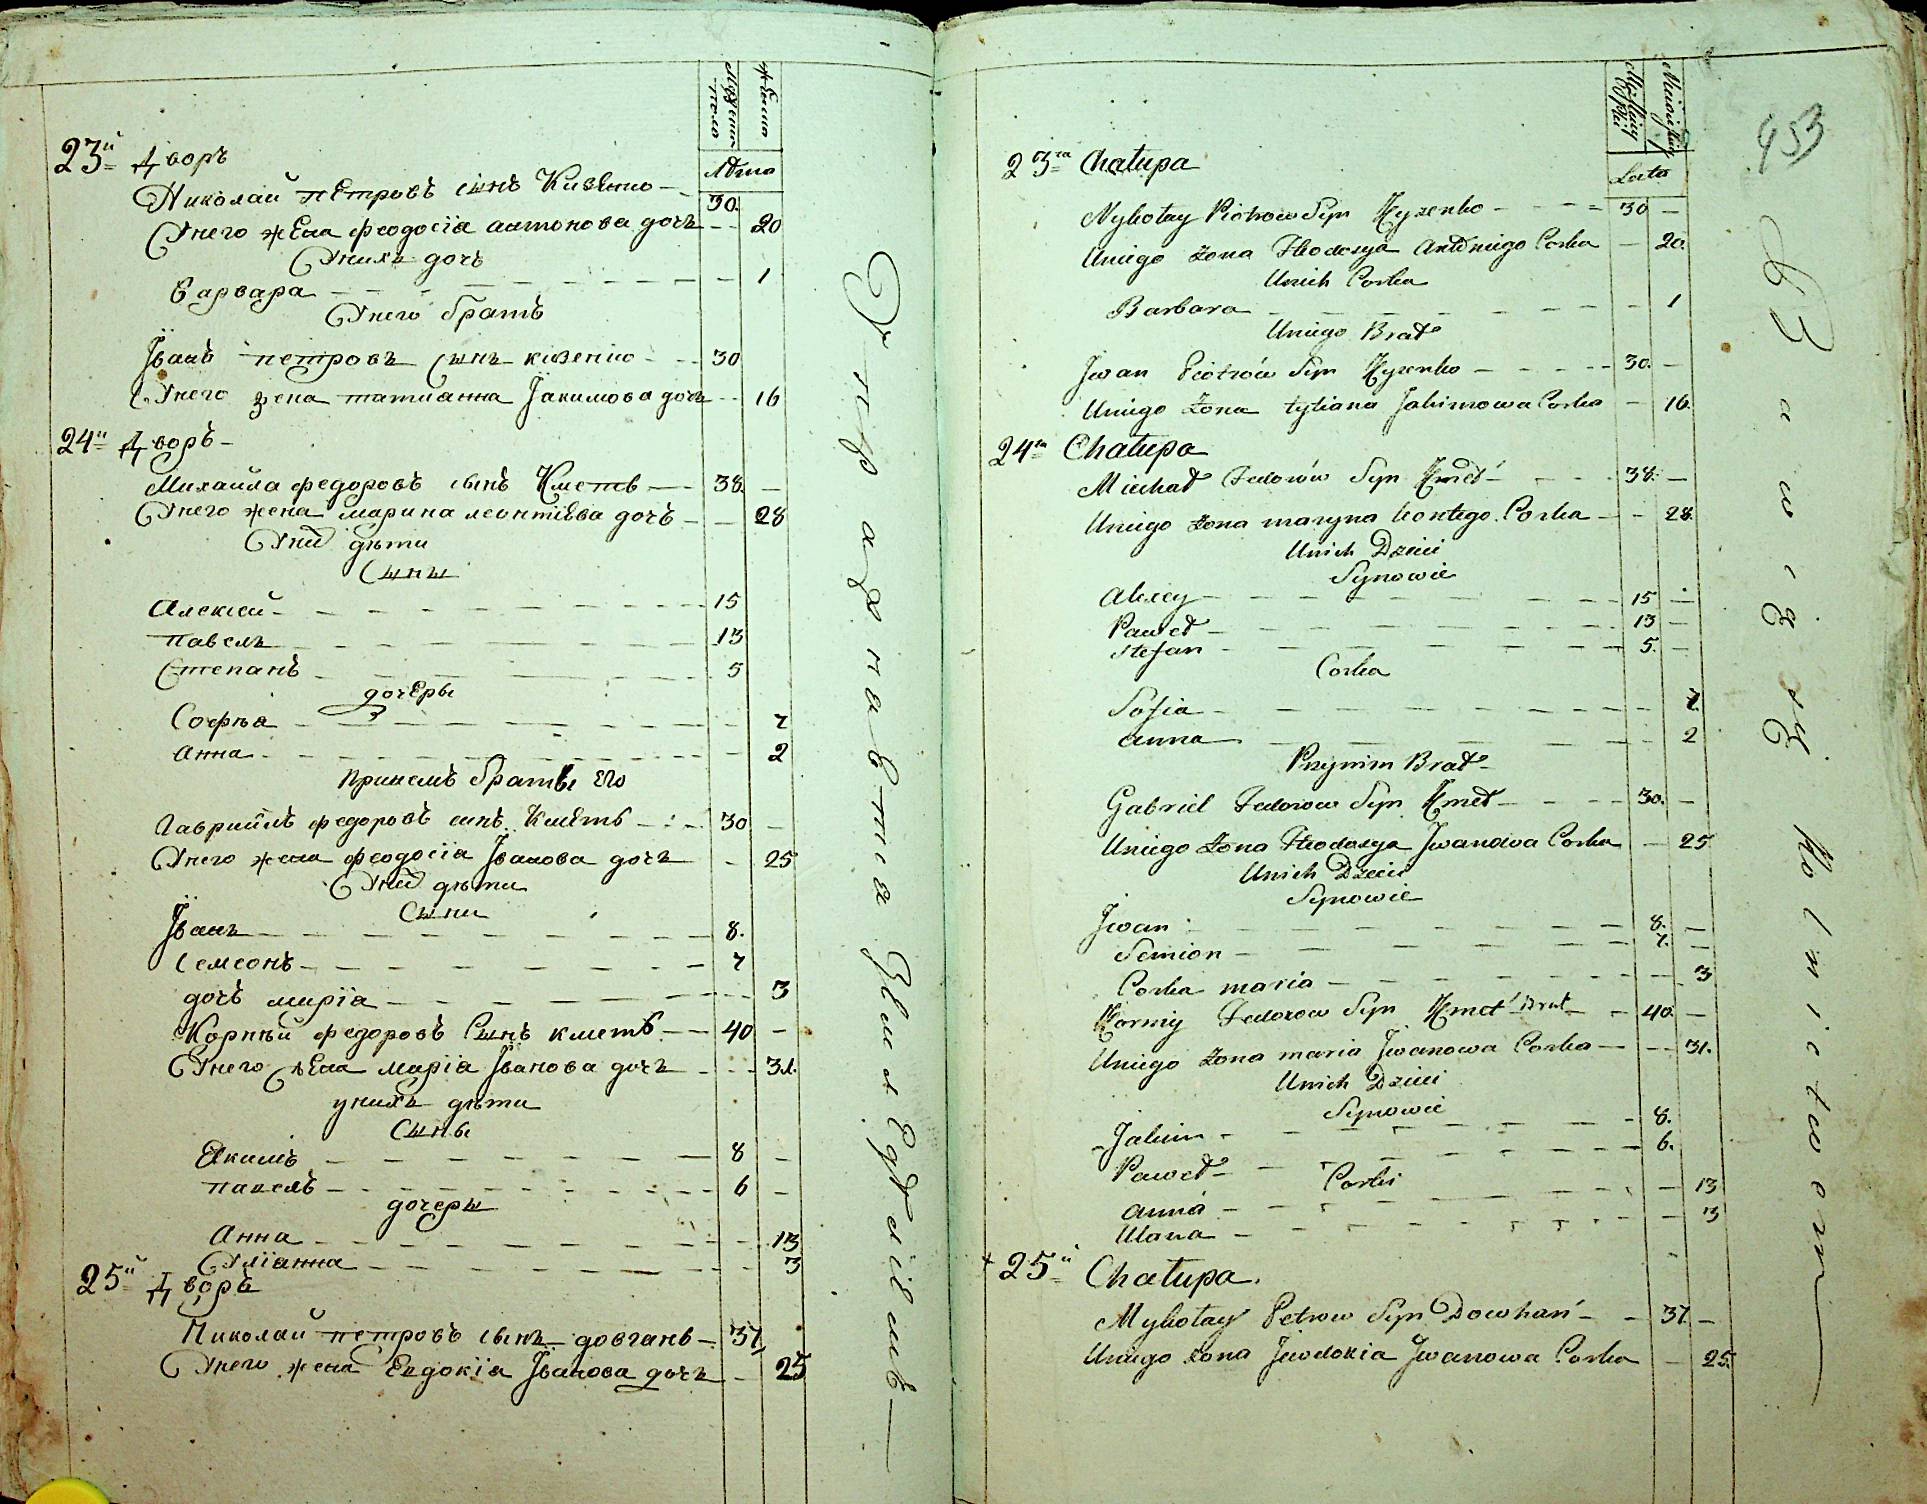 мужеска
пола
женска
лѣта
23й Дворъ
Николай петровъ сынъ Кизенко 30.
Унего жена феодосїа антонова дочь 20
Унихъ дочь
Варвара 1
Унего братъ
Їванъ петровъ сынъ кизенко 30
Унего жена татианна Їакимова дочь 16
24й Дворъ
Михайла федоровъ сынъ Кметь 38.
Унего жена марина леонтїева дочь 28
Уних дѣти
Сыны
Алексей 15
павелъ 13
Степанъ 5
дочеры
Софѣа 7
Анна 2
принемъ братъ Его
Гаврийлъ федоровъ синъ Кметь 30
Унего жена феодосїа Їванова дочь 25
Уних дѣти
Сыни
Їванъ 8.
Семеонъ 7
дочь мирїа 3
Корнѣй федоровъ Сынъ кметь 40
Унего жена марїа Їванова дочь 31.
унихъ дѣти
Сыны
Якимъ 8
павелъ 6
дочеры
Анна 13
Улїанна 3
25й Дворъ
Николай петровъ сынъ довгань 37
Унего жена Евдокїа Їванова дочь 25
Lata
23cia Chałupa
Mykołay Piotrow Syn Kyzenko 30
Uniego żona Theodosya Antoniego Corka 20.
Unich Corka
Barbara 1
Uniego Brat
Jwan Piotrów Syn Kyzenko 30.
Uniego żona tytiana Jakimowa Corka 16.
24ta Chałupa
Miechał Fedorów Syn Kmeć 38.
Uniego żona maryna Leontego Corka 28.
Unich Dzieci
Synowie
Alexey 15
Paweł 13
Stefan 5.
Corka
Sofia 7.
anna 2
Przynim Brat
Gabriel Fedorow Syn Kmeć 30.
Uniego żona Theodosya Jwanowa Corka 25
Unich Dzieci
Synowie
Jwan 8.
Semion 7.
Corka maria 3
Korniy Fedorow Syn Kmeć Brat 40.
Uniego żona maria Jwanowa Corka 31.
Unich Dzieci
Synowie
Jakim 8.
Paweł 6.
Corki
anna 13
Ulana 3
25a Chałupa.
Mykołay Petrow Syn Dowhań 37
Uniego żona Jewdokia Jwanowa Corka 25.
453